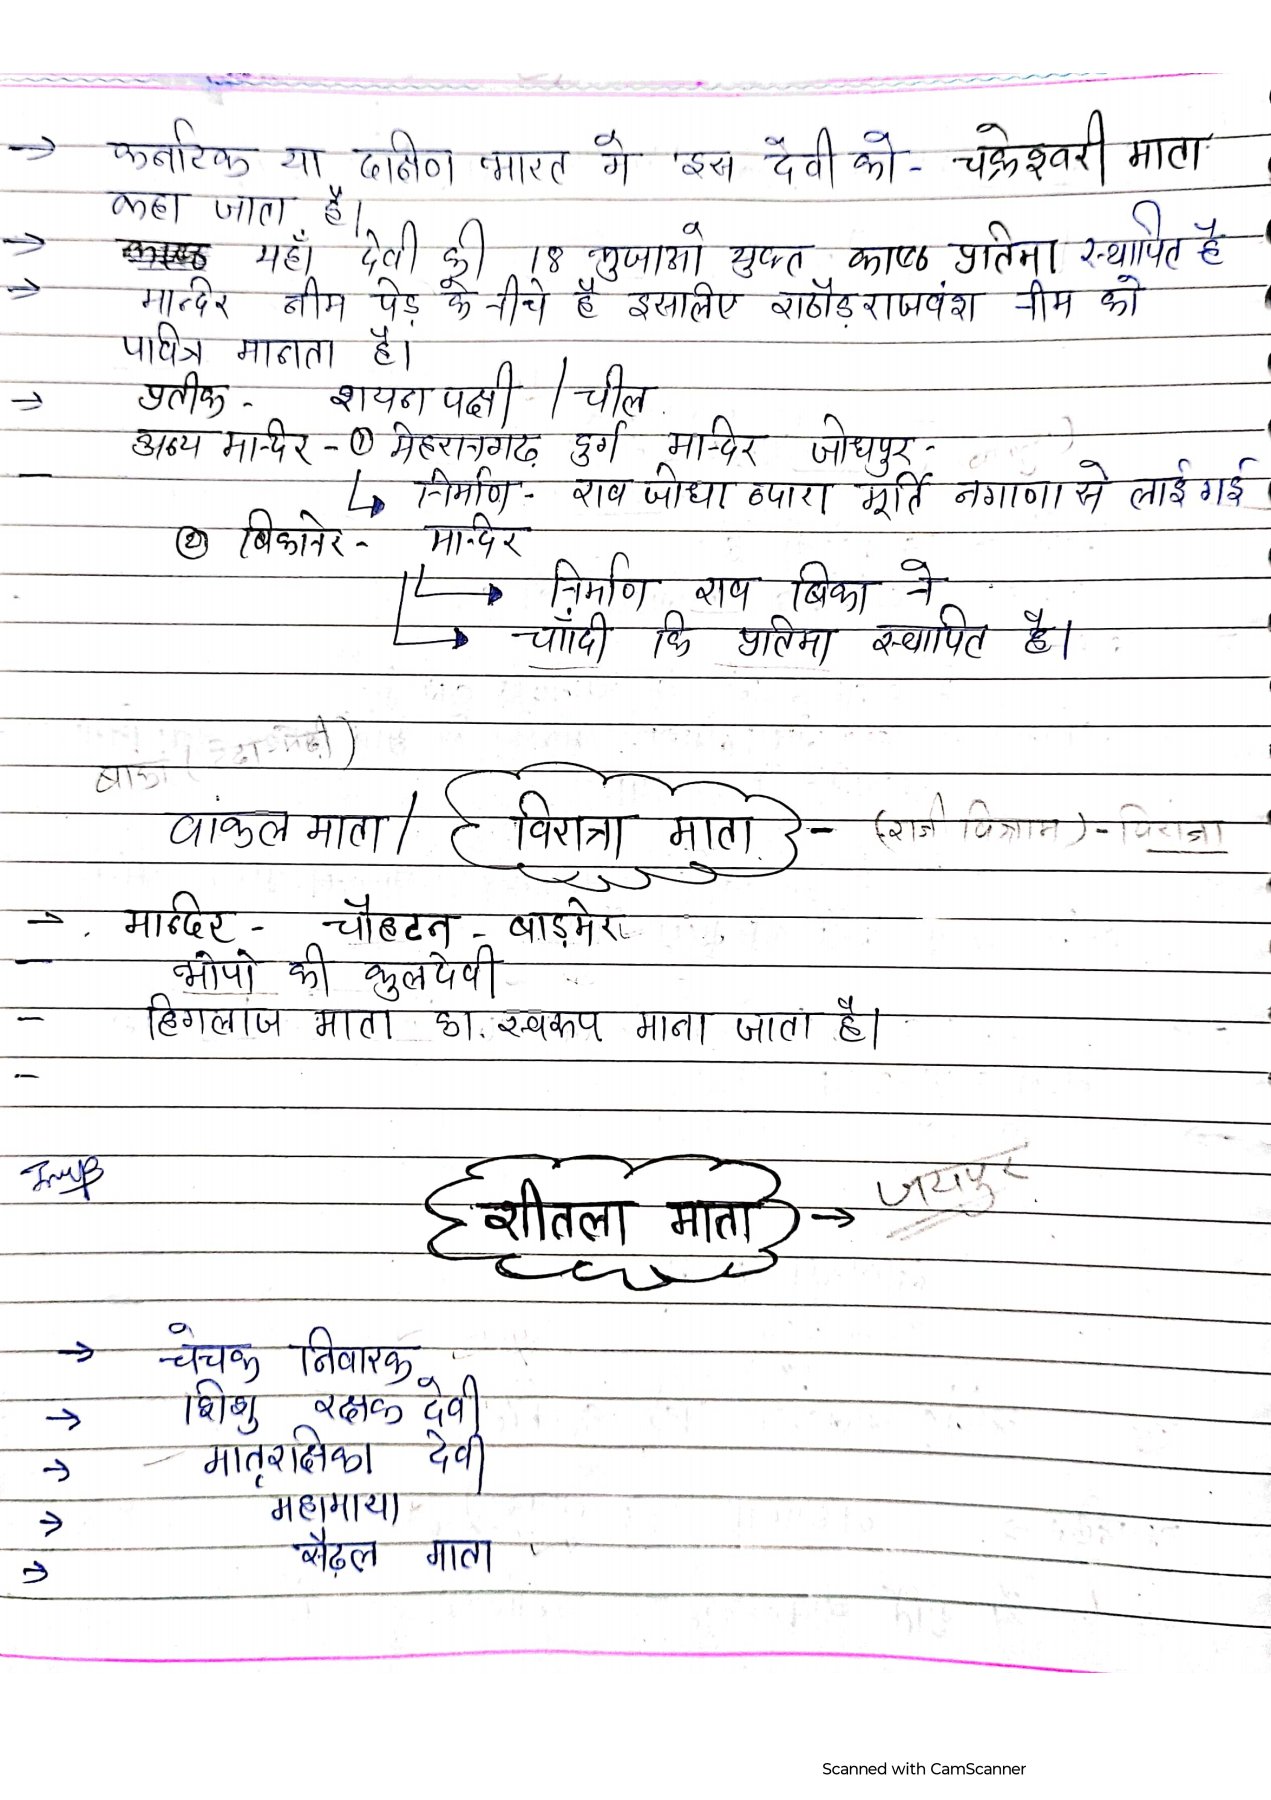 → कर्नाटक या दक्षिण भारत मे इस देवी को - चक्रेश्वरी माता
कहा जाता है।
→ यहाँ देवी की 18 भुजाओ युक्त काष्ठ प्रतिमा स्थापित है
→ मन्दिर नीम पेड़ के नीचे है इसलिए राठौड़ राजवंश नीम को
पवित्र मानता है।
→ प्रतीक - शयन पक्षी / चील
अन्य मन्दिर - ① मेहरानगढ़ दुर्ग मन्दिर जोधपुर -
↳ निर्माण - राव जोधा व्दारा मूर्ति नगाणा से लाई गई
② बिकानेर - मन्दिर
→ निर्माण राव बिका ने
→ चाँदी कि प्रतिमा स्थापित है।
बांका
वांकुल माता / विरात्रा माता - (रात्री विश्राम) - विरात्रा
→ मन्दिर - चौहटन - बाड़मेर
- भोपो की कुलदेवी
- हिगलाज माता का स्वरूप माना जाता है।
-
Imp
शीतला माता → जयपुर
→ चेचक निवारक
→ शिशु रक्षक देवी
→ मातृरक्षिका देवी
→ महामाया
→ सैढ़ल माता
Scanned with CamScanner